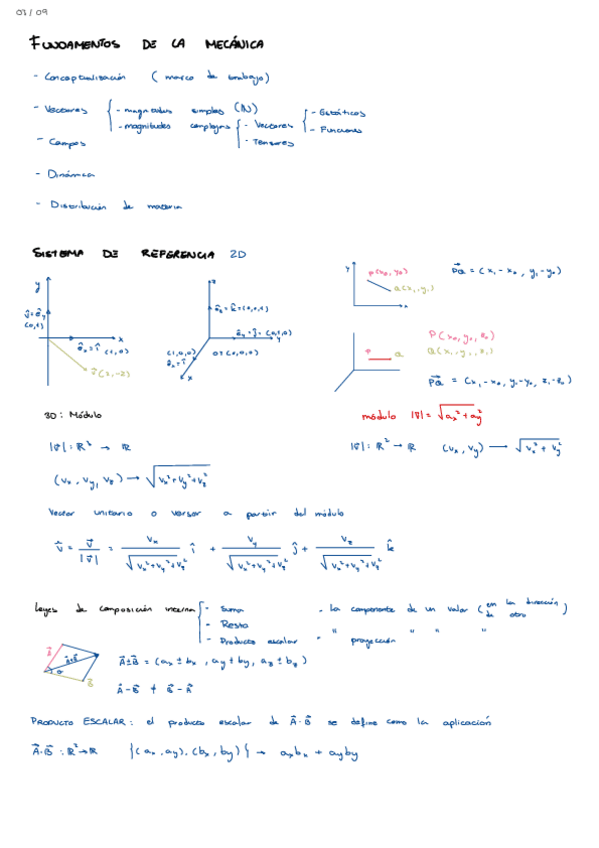 07/09
FUNDAMENTOS DE LA MECÁNICA
- Conceptualización (marco de trabajo)
- Vectores { - magnitudes simples (N)
- magnitudes complejas { - Vectores { - Estáticos
- Funciones
- Tensores
- Campos
- Dinámica
- Distribución de materia
SISTEMA DE REFERENCIA 2D
y
ĵ = ê_y
(0,1)
x
ê_x = î (1,0)
z
ê_z = k̂ = (0,0,1)
ê_y = ĵ = (0,1,0)
y
(1,0,0)
ê_x = î
x
0 = (0,0,0)
Y
P(x₀, y₀)
Q(x₁, y₁)
x
PQ = (x₁ - x₀, y₁ - y₀)
P(x₀, y₀, z₀)
Q(x₁, y₁, z₁)
P
Q
PQ = (x₁ - x₀, y₁ - y₀, z₁ - z₀)
3D: Módulo
módulo |v⃗| = √(aₓ² + a_y²)
|v⃗| : ℝ³ → ℝ
|v⃗| : ℝ² → ℝ (vₓ, v_y) → √(vₓ² + v_y²)
(vₓ, v_y, v_z) → √(vₓ² + v_y² + v_z²)
Vector unitario o versor a partir del módulo
v̂ = v⃗ / |v⃗| = vₓ / √(vₓ² + v_y² + v_z²) î + v_y / √(vₓ² + v_y² + v_z²) ĵ + v_z / √(vₓ² + v_y² + v_z²) k̂
Leyes de composición interna { - Suma
- Resta
- Producto escalar
- la componente de un valor (en la dirección de otro)
- " proyección " " "
A⃗ ± B⃗ = (aₓ ± bₓ, a_y ± b_y, a_z ± b_z)
A⃗ - B⃗ ≠ B⃗ - A⃗
PRODUCTO ESCALAR: el producto escalar de A⃗ · B⃗ se define como la aplicación
A⃗ · B⃗ : ℝ² → ℝ {(aₓ, a_y), (bₓ, b_y)} → aₓbₓ + a_yb_y